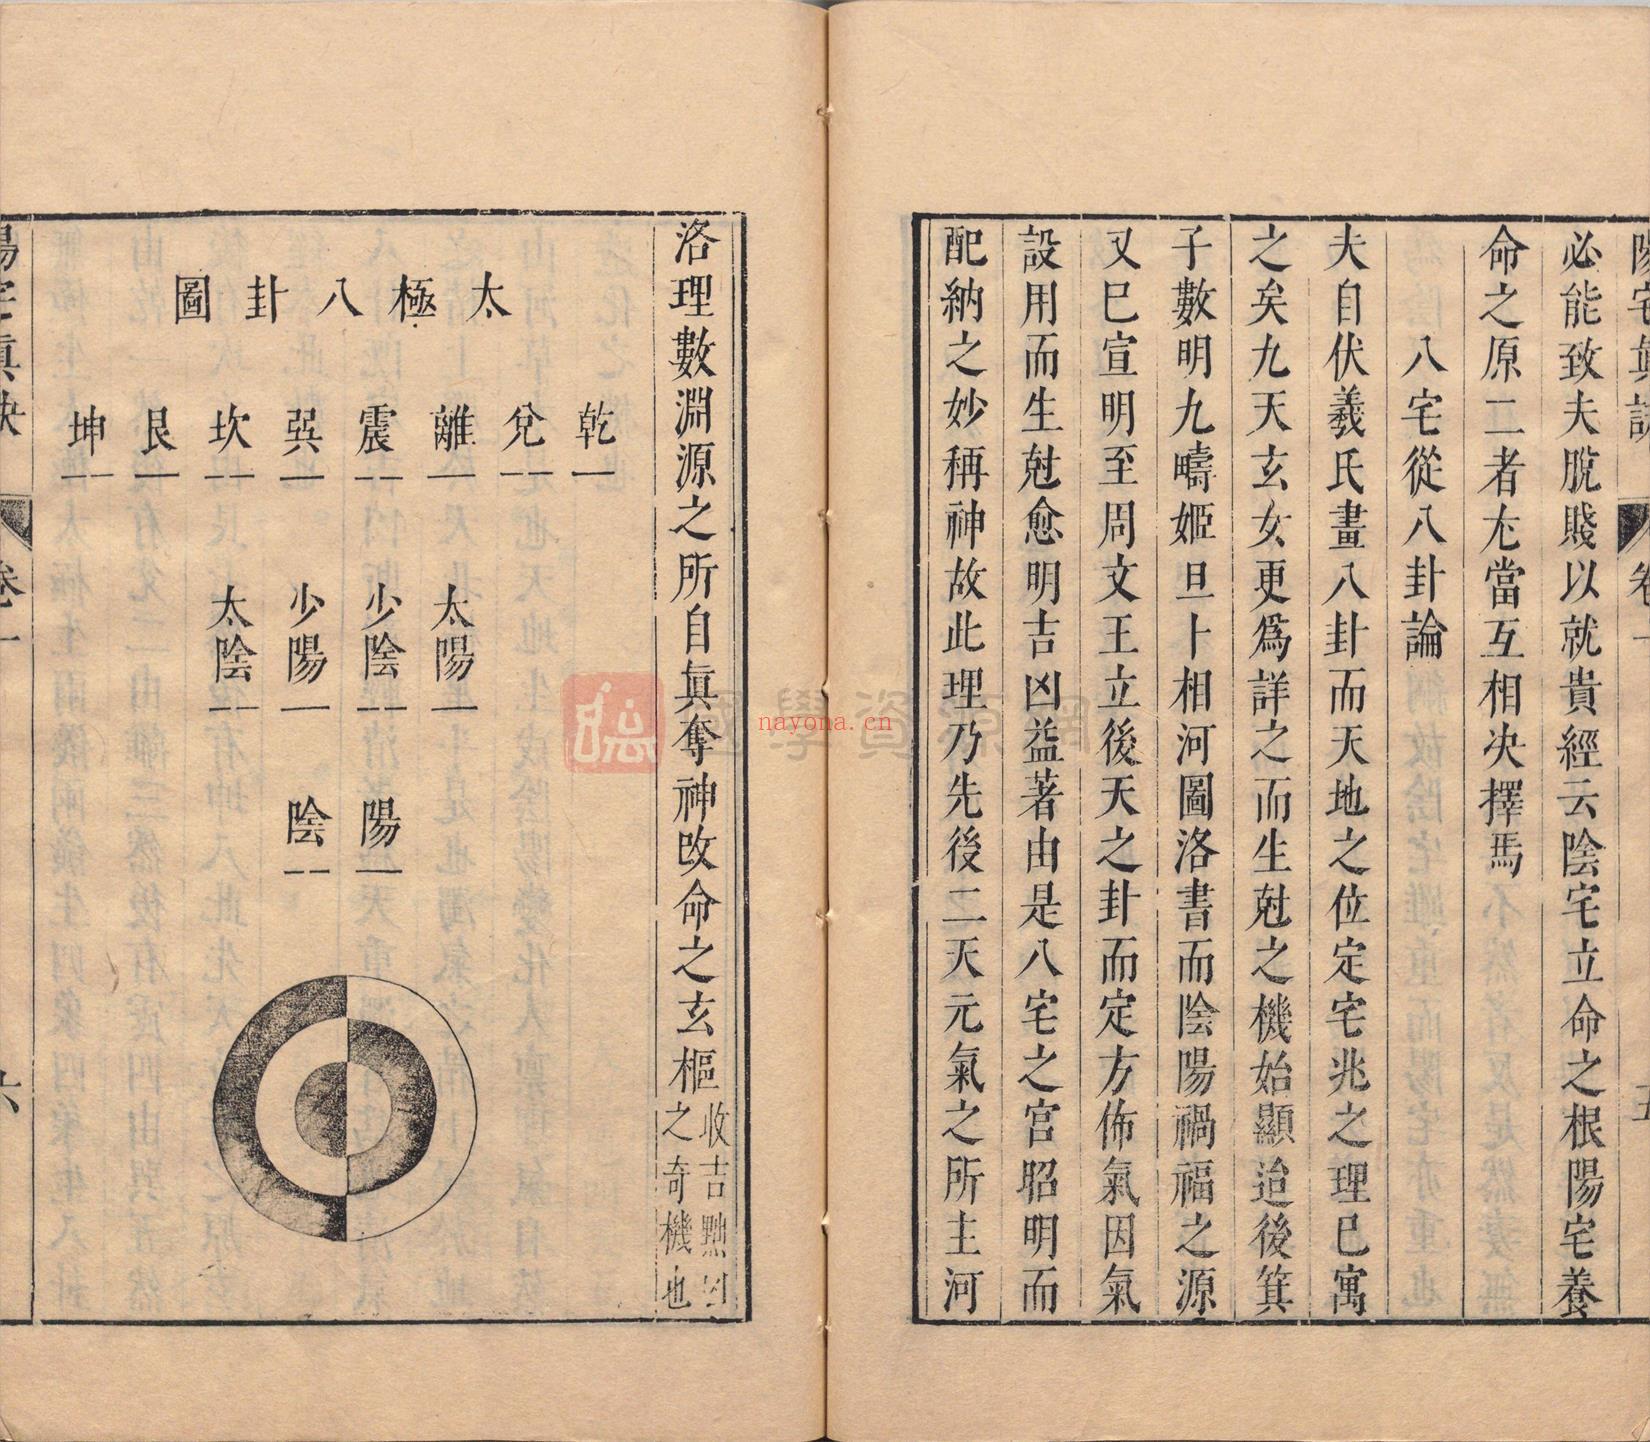 必能致夫脫賤以就貴經云陰宅立命之根陽宅養
命之原二者尢當互相決擇焉
八宅從八卦論
夫自伏羲氏畫八卦而天地之位定宅兆之理已寓
之矣九天玄女更爲詳之而生尅之機始顯迨後箕
子數明九疇姬旦卜相河圖洛書而陰陽禍福之源
又已宣明至周文王立後天之卦而定方佈氣因氣
設用而生尅愈明吉凶益著由是八宅之宫昭明而
配納之妙稱神故此理乃先後二天元氣之所主河
洛理數淵源之所自眞奪神改命之玄樞收吉
之奇機也
太極八卦圖
乾 兌 離 震 巽 坎 艮 坤
太陽 少陰 少陽 太陰
陽 陰
卷一
六
nayona.cn
國學資源網